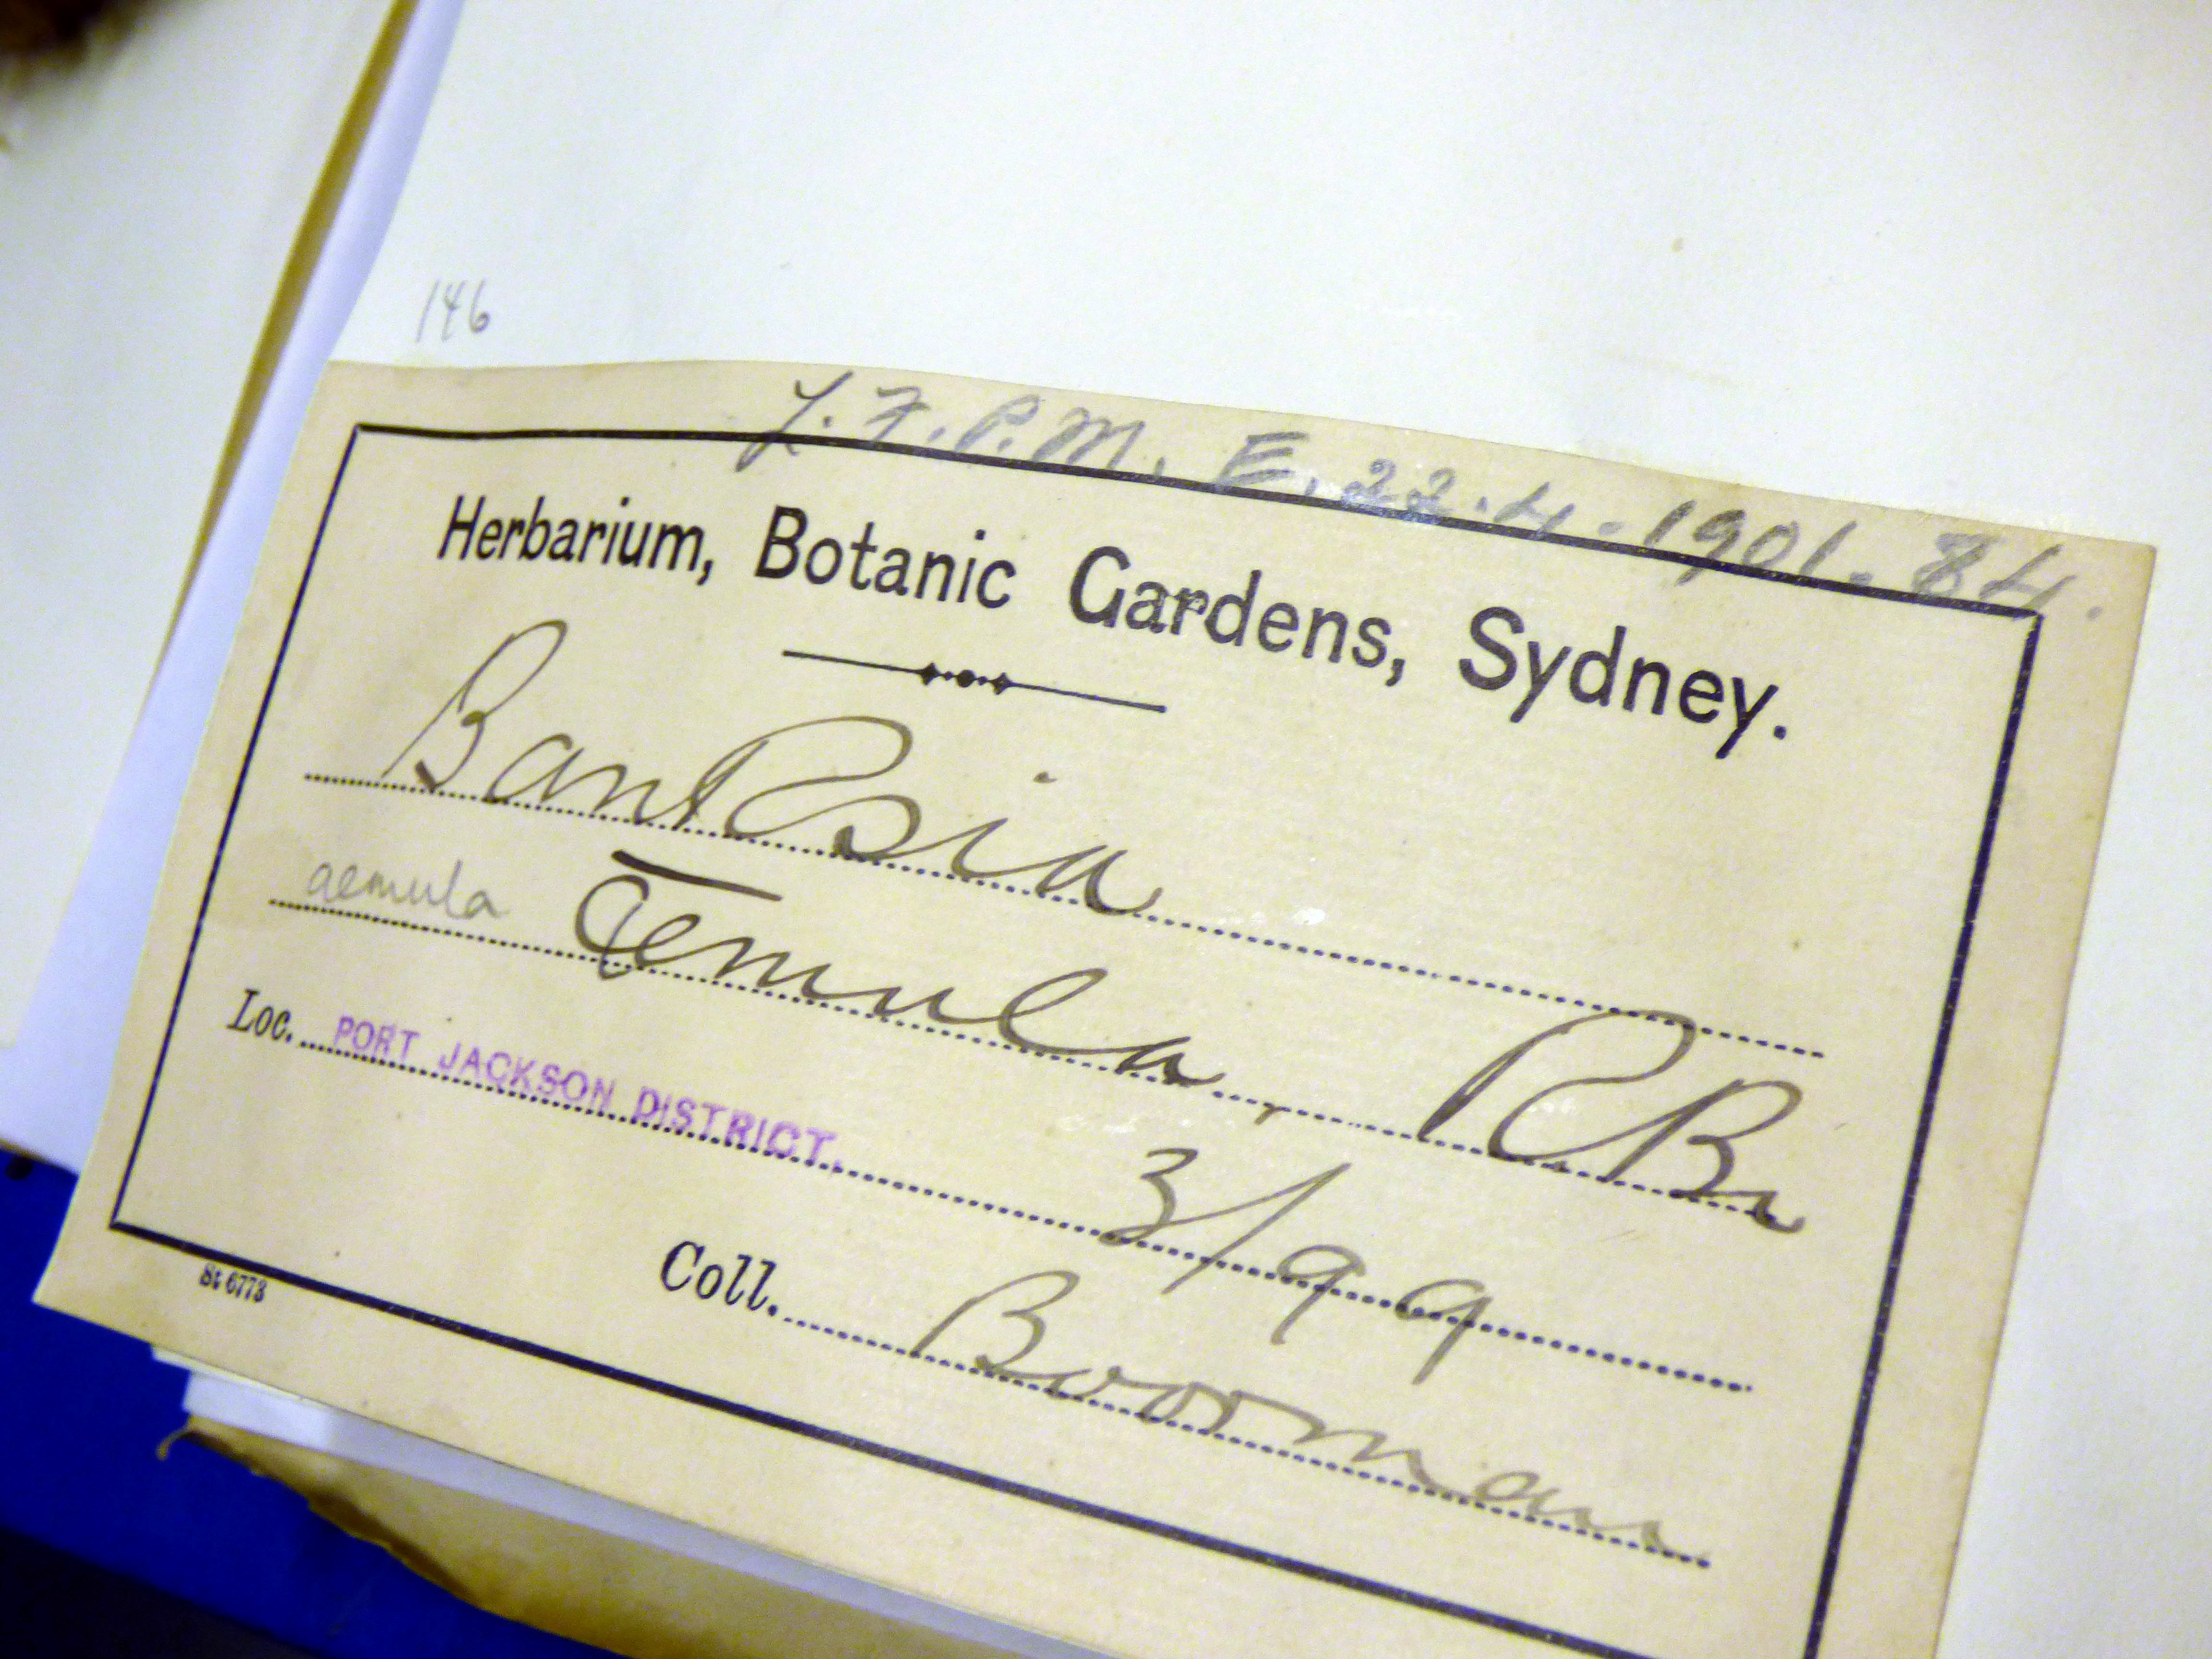 146
L.F.P.M. E. 22.4.1901. 84.
Herbarium, Botanic Gardens, Sydney.
Banksia
aemula Æmula, RBr
Loc. PORT JACKSON DISTRICT.
3/99
Coll. Boorman
St 6773